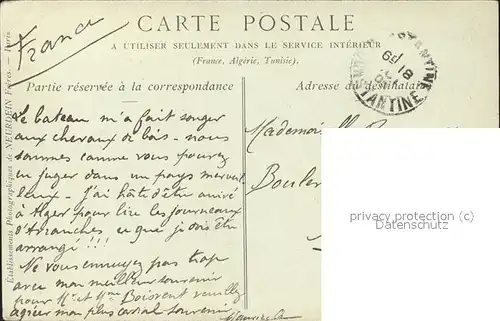 France
CARTE POSTALE
A UTILISER SEULEMENT DANS LE SERVICE INTÉRIEUR
(France, Algérie, Tunisie).
Partie réservée à la correspondance
Adresse du destinataire
CONSTANTINE
18
Établissements Photographiques de NEURDEIN Frères. — Paris
Le bateau m'a fait songer
aux chevaux de bois - nous
sommes comme vous pouvez
en juger dans un pays merveil
leux - J'ai hâte d'être arrivé
à Alger pour lire les journeaux
d'Avranches ce que je dois être
arrangé !!!
Ne vous ennuyez pas trop
avec mon meilleur souvenir
pour Mr et Mme Boisvent veuillez
agréer mon plus cordial souvenir
Mademoi
Boulev
privacy protection copyright (c)